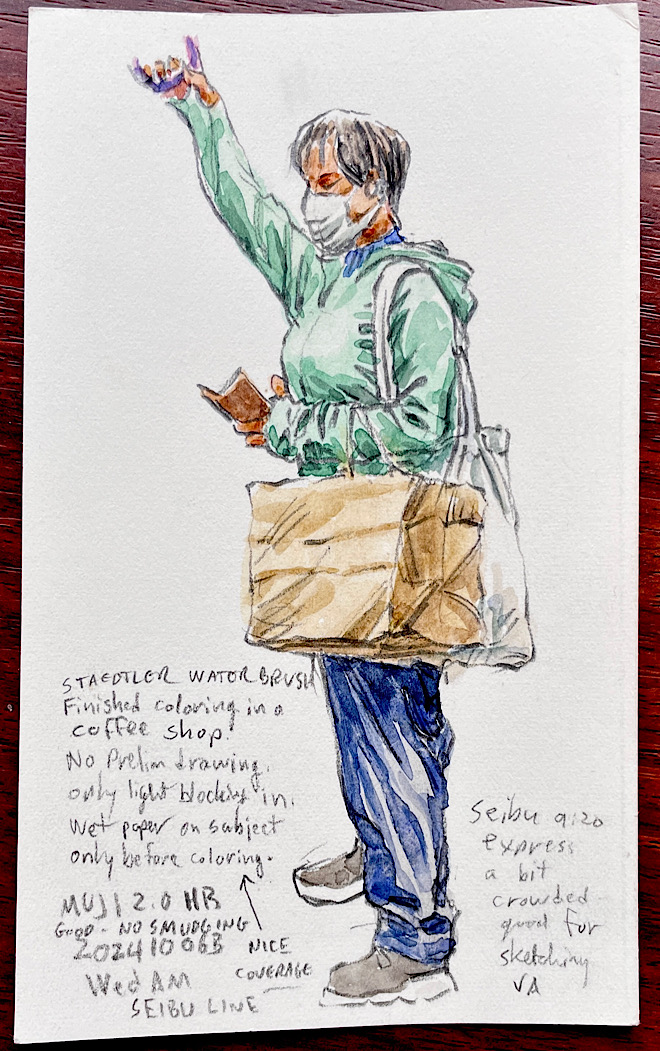 STAEDTLER WATOR BRUSH
Finished coloring in a
coffee shop.
No Prelim drawing.
only light blocking in.
Wet paper on subject
only before coloring.
MUJI 2.0 HB
GOOD - NO SMUDGING
20241006B
Wed AM
SEIBU LINE
NICE
COVERAGE
Seibu 9:20
express
a bit
crowded
good for
sketching
VA